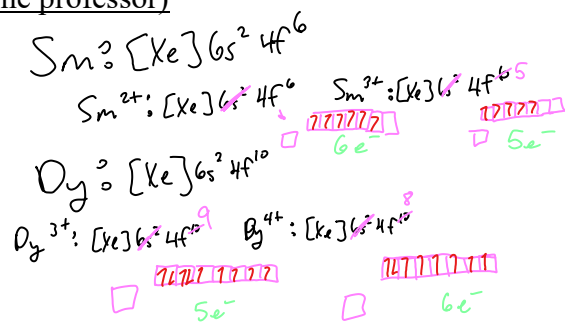 the professor)
Sm: [Xe] 6s² 4f⁶
Sm²⁺: [Xe] 6s² 4f⁶ Sm³⁺: [Xe] 6s² 4f⁶ 5
6e⁻ 5e⁻
Dy: [Xe] 6s² 4f¹⁰
Dy³⁺: [Xe] 6s² 4f¹⁰ 9 Dy⁴⁺: [Xe] 6s² 4f¹⁰ 8
5e⁻ 6e⁻